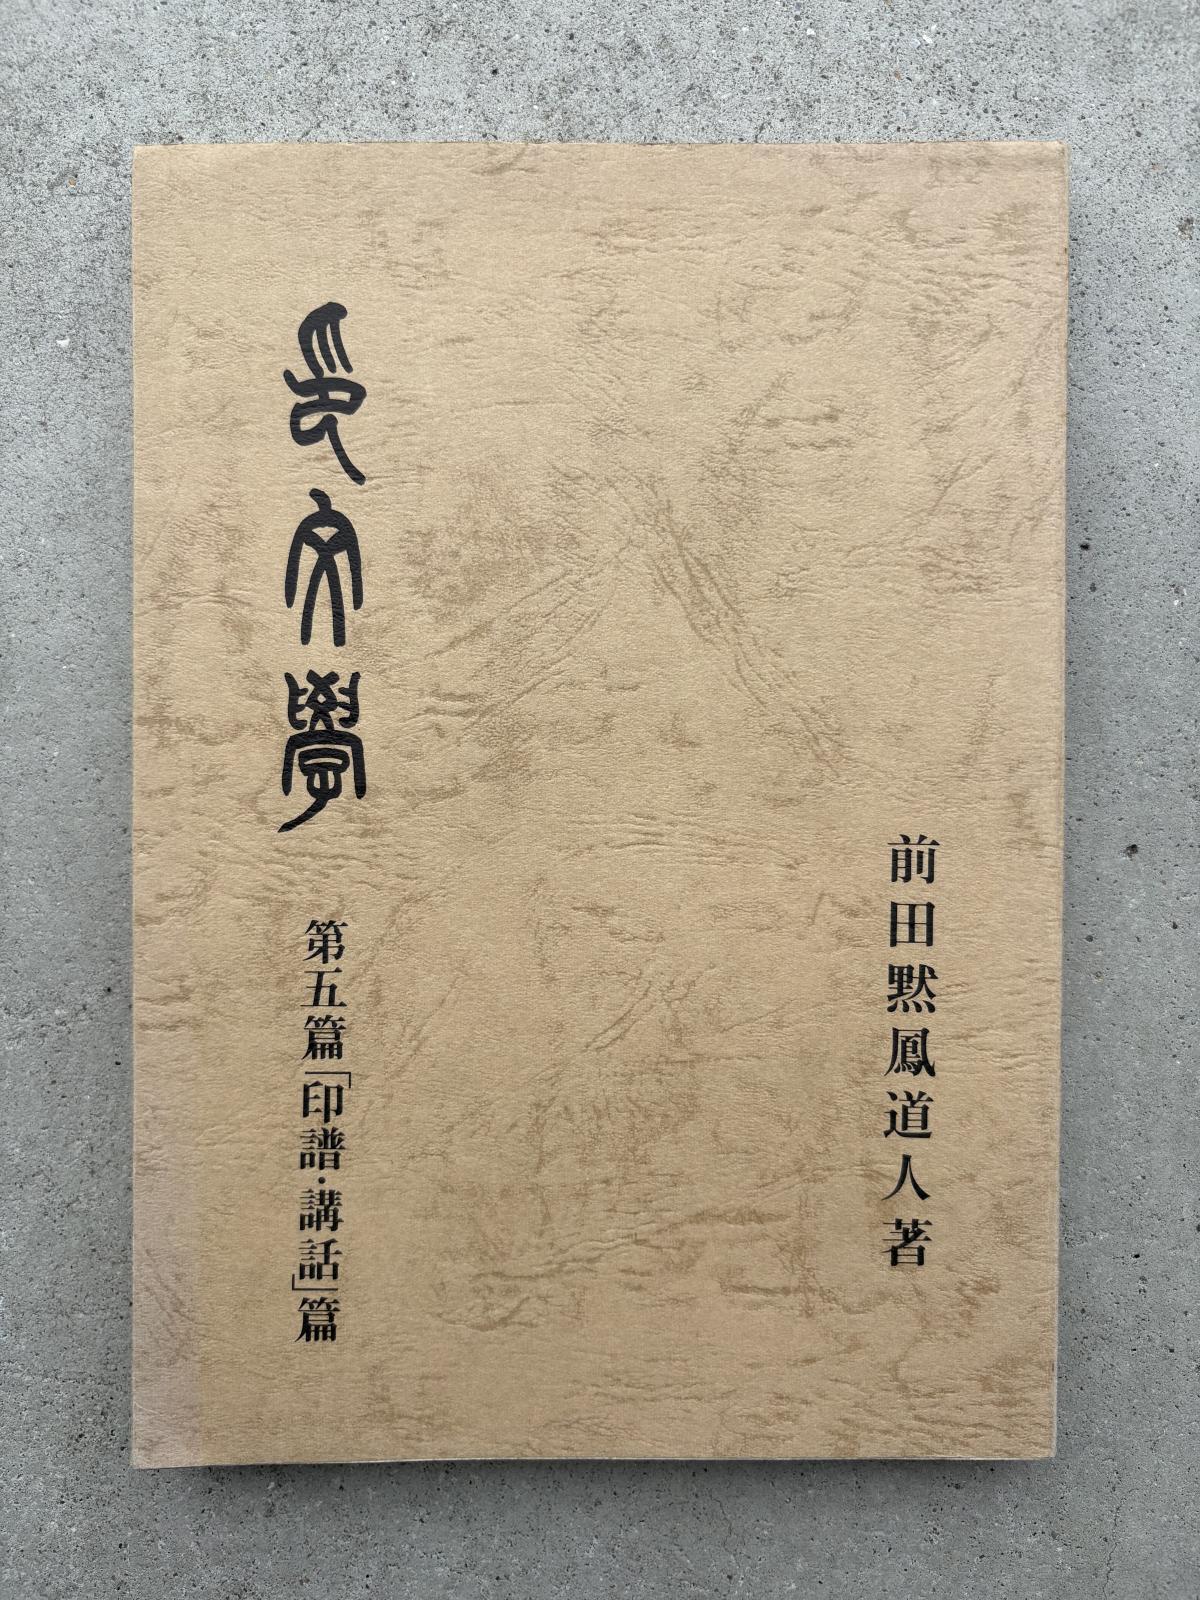 前田黙鳳道人著
印文學
第五篇「印譜・講話」篇